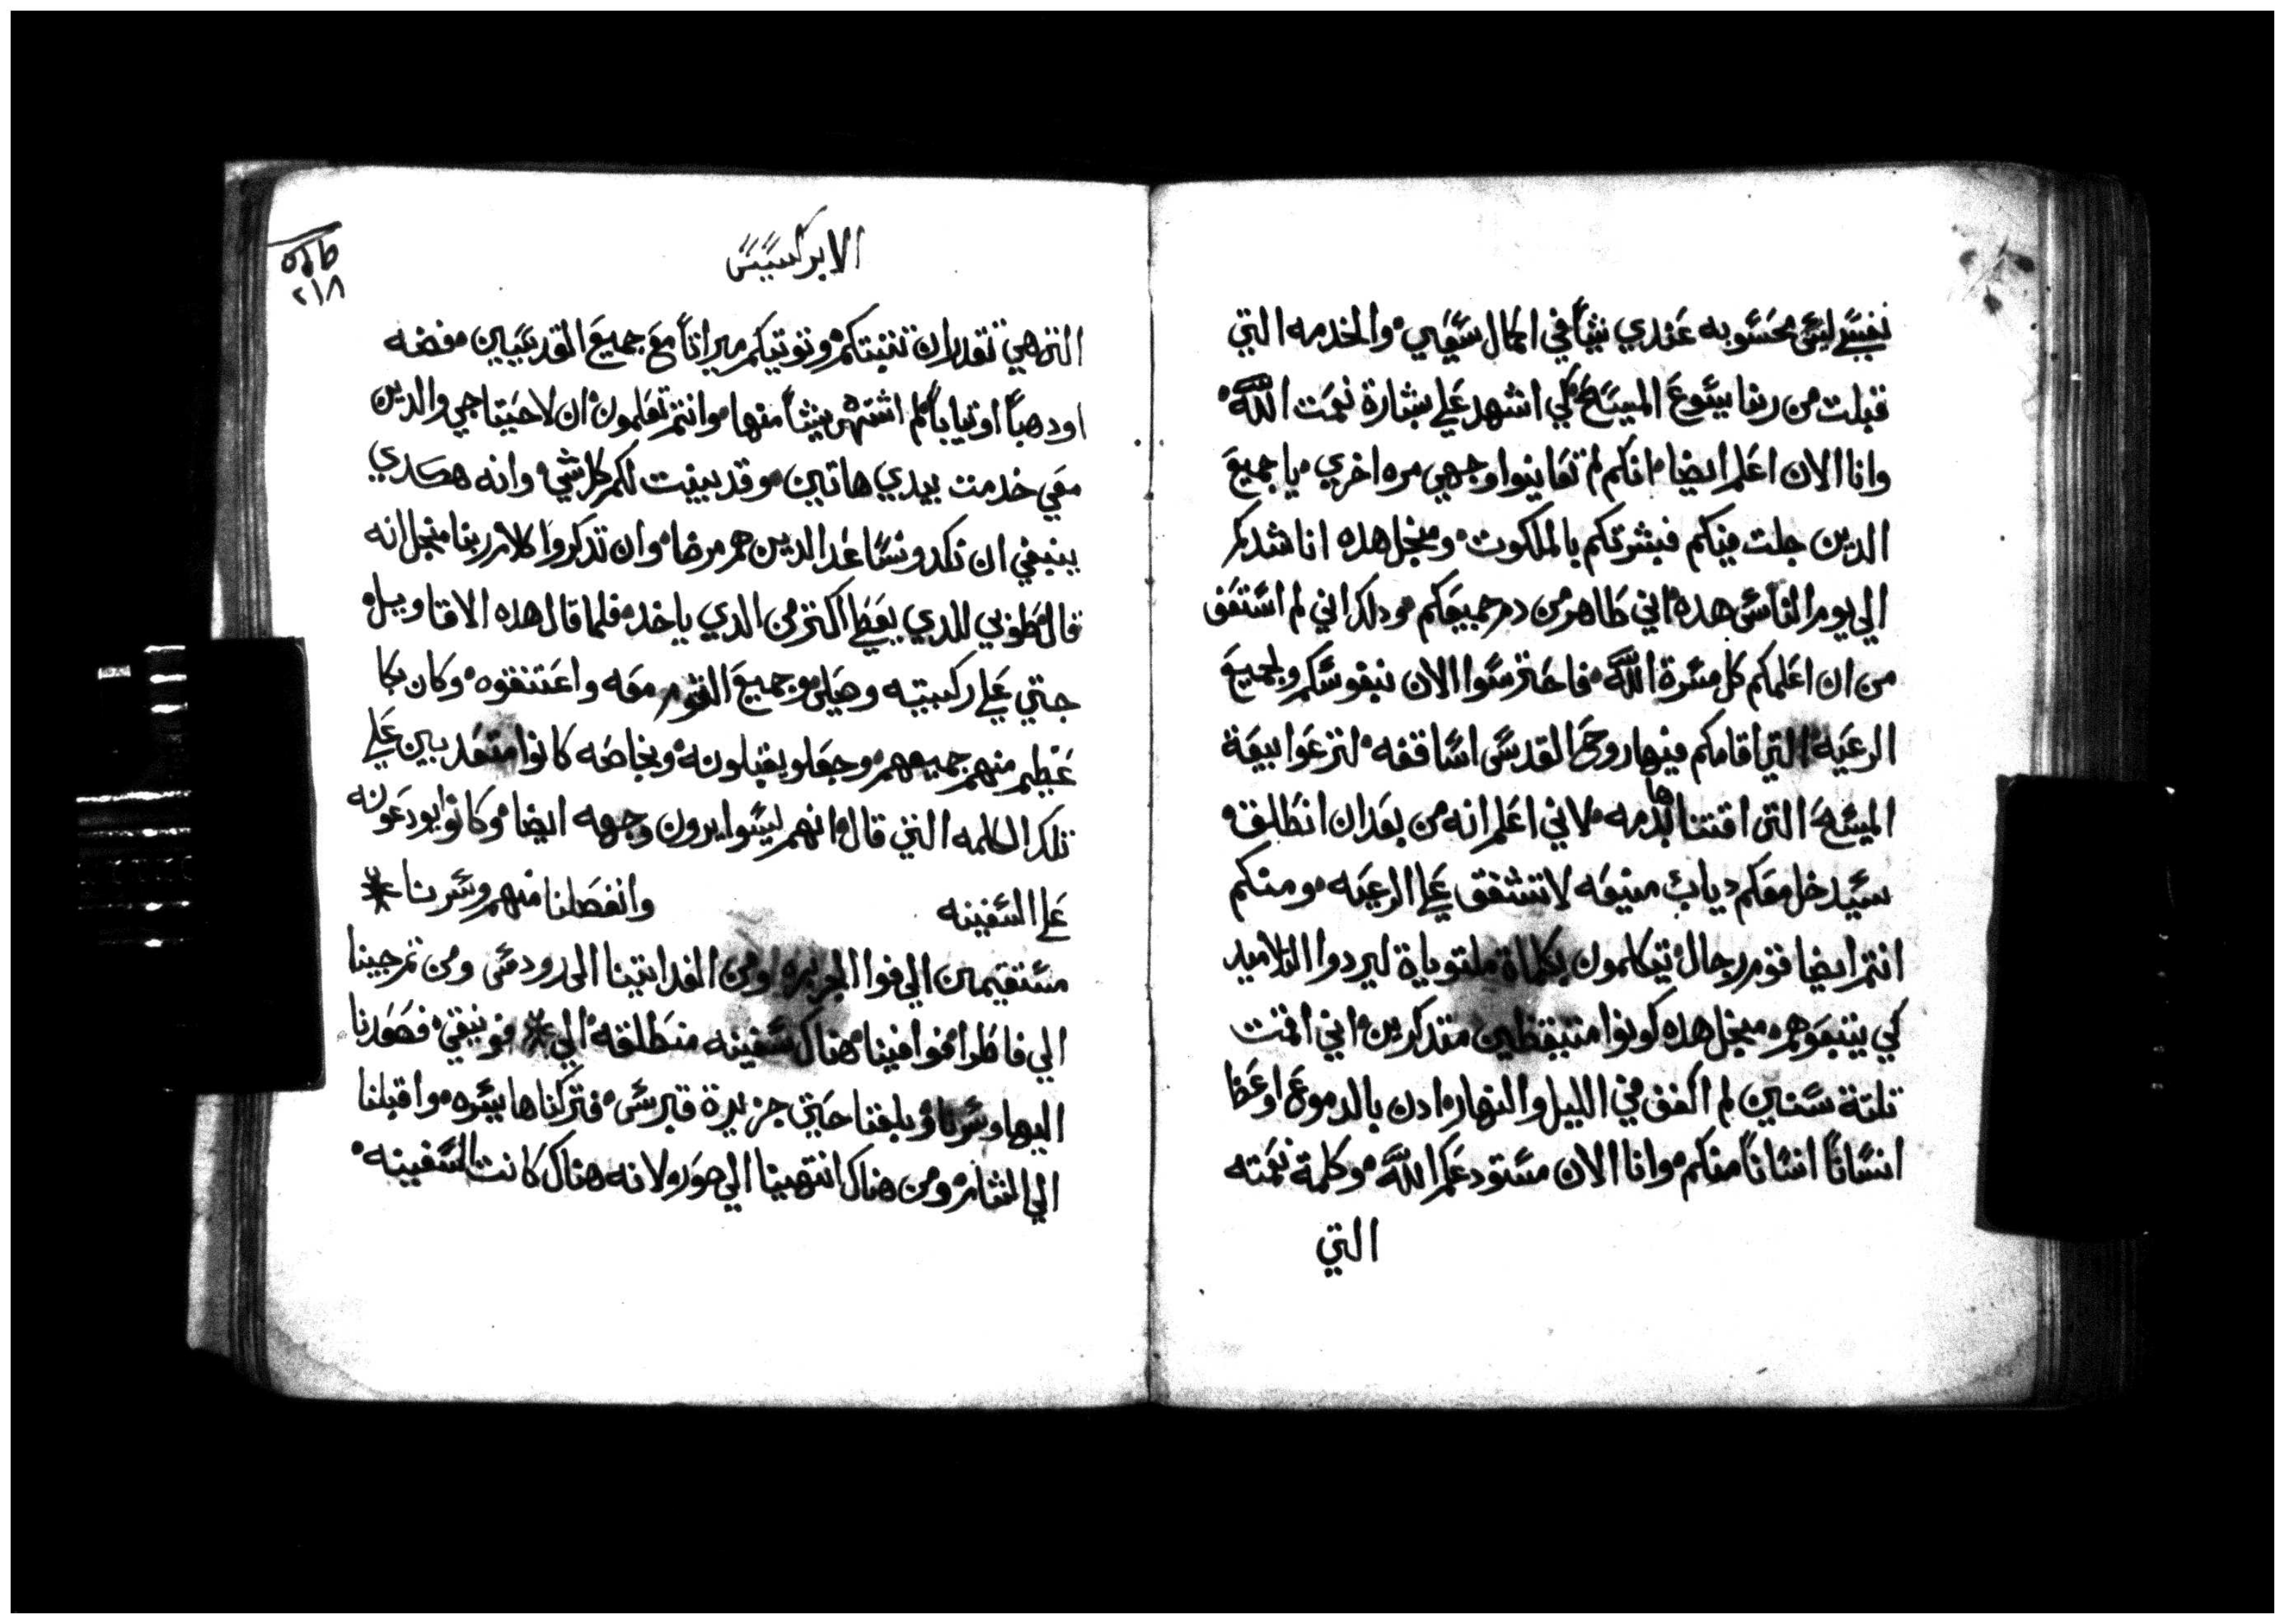 نفسي ليس محسوبه عندي شياً في اكمال سعيي والخدمه التي
قبلت من ربنا يسوع المسيح لكي اشهد علي بشارة نعمت الله
وانا الان اعلم ايضا انكم لم تعاينوا وجهي مره اخري يا جميع
الدين جلت فيكم فبشرتكم بالملكوت ومنجل هده اناشدكم
الي يوم الناس هده اني طاهر من دم جميعكم ودلك اني لم استعف
من ان اعلمكم كل مسرة الله فاحترسوا الان بنفوسكم ولجميع
الرعيه التي اقامكم فيها روح القدس اساقفه لترعوا بيعة
المسيح التي اقتناها بدمه لاني اعلم انه من بعد ان انطلق
سيدخل معكم دياب منيعه لا تشفق علي الرعيه ومنكم
انتم ايضا قوم رجال يتكلمون بكلماة ملتوياة ليردوا التلاميد
كي يتبعوهم منجل هده كونوا متيقظين متدكرين اني اقمت
تلتة سنين لم اكفف في الليل والنهار ادن بالدموع اوعظ
انسانا انسانا منكم وانا الان مستودعكم الله وكلمة نعمته
التي
الابركسيس
٢١٨
التي هي تقدر ان تتبتكم وتوتيكم ميراتا مع جميع القديسين فضه
او دهباً او تياباً لم اشتهي شيئاً منها وانتم تعلمون ان لاحتياجي والدين
معي خدمت بيدي هاتين وقد بينت لكم كل شي وانه هكدي
ينبغي ان نكد ونساعد الدين هم مرضا وان تدكروا كلام ربنا منجل انه
قال طوبي للدي يعطي اكتر من الدي ياخد فلما قال هده الاقاويل
جتي علي ركبتيه وصلي وجميع القوم معه واعتنقوه وكان بكا
عظيم منهم جميعهم وجعلو يقبلونه وبخاصه كانوا متعدبين علي
تلك الكلمه التي قال انهم ليسوا يرون وجهه ايضا وكانوا يودعونه
علي السفينه وانفصلنا منهم وسرنا
مستقيمين الي قوا الجزيره ومن الغد اتينا الي رودس ومن تم جينا
الي فاطرا فوافينا هناك سفينه منطلقه الي فونيقي فصعدنا
اليها وسرنا وبلغنا حتي جزيرة قبرس فتركناها يسره واقبلنا
الي الشام ومن هناك انتهينا الي صور لانه هناك كانت السفينه